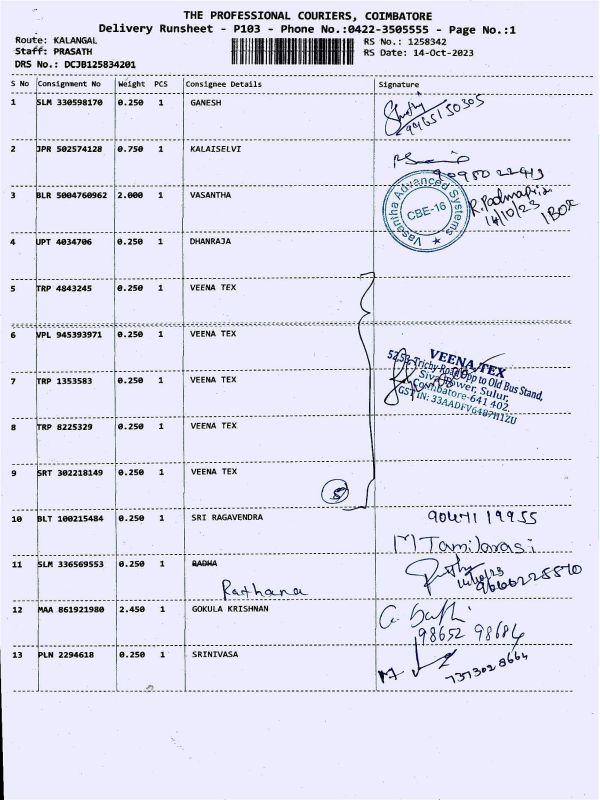 THE PROFESSIONAL COURIERS, COIMBATORE
Delivery Runsheet - P103 - Phone No.:0422-3505555 - Page No.:1
Route: KALANGAL
Staff: PRASATH
DRS No.: DCJB125834201
RS No.: 1258342
RS Date: 14-Oct-2023
S No Consignment No Weight PCS Consignee Details Signature
1 SLM 330598170 0.250 1 GANESH
9965150305
2 JPR 502574128 0.750 1 KALAISELVI
3 BLR 5004760962 2.000 1 VASANTHA
Vasantha Advanced Systems
CBE-16
R. Padmapriya
14/10/23
1 BOX
4 UPT 4034706 0.250 1 DHANRAJA
5 TRP 4843245 0.250 1 VEENA TEX
6 VPL 945393971 0.250 1 VEENA TEX
VEENA TEX
52,53, Trichy Road, Opp to Old Bus Stand,
Siva Tower, Sulur,
Coimbatore-641 402.
7 TRP 1353583 0.250 1 VEENA TEX
8 TRP 8225329 0.250 1 VEENA TEX
9 SRT 302218149 0.250 1 VEENA TEX
5
10 BLT 100215484 0.250 1 SRI RAGAVENDRA
M Tamilarasi
11 SLM 336569553 0.250 1 RADHA
Rathana
12 MAA 861921980 2.450 1 GOKULA KRISHNAN
98652 98684
13 PLN 2294618 0.250 1 SRINIVASA
7373028664